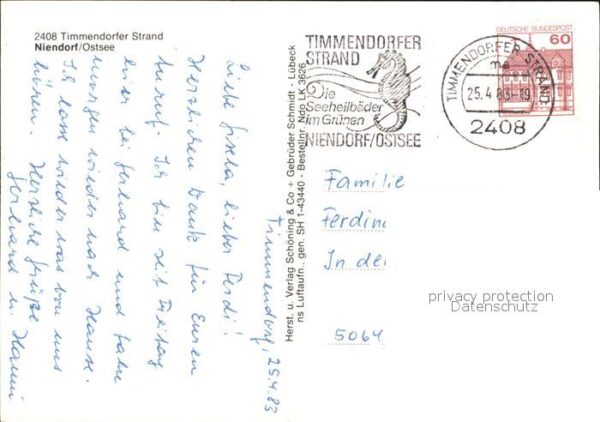 2408 Timmendorfer Strand
Niendorf/Ostsee
Timmendorf, 25.4.83
Liebe Gisela, lieber Ferdi!
Herzlichen Dank für Euren
Anruf. Ich bin seit Freitag
hier bei Gerhard und fahre
morgen wieder nach Hause.
Ich lasse wieder was von uns
hören. Herzliche Grüße
Gerhard u. Hanni
Herst. u. Verlag Schöning & Co + Gebrüder Schmidt - Lübeck
ns Luftaufn., gen. SH 1-43440 - Bestellnr. Ndo LK 3626
TIMMENDORFER
STRAND
Die
Seeheilbäder
im Grünen
NIENDORF/OSTSEE
TIMMENDORFER STRAND
me
25.4.83-19
2408
DEUTSCHE BUNDESPOST
60
Familie
Ferdin
In de
5064
privacy protection
Datenschutz